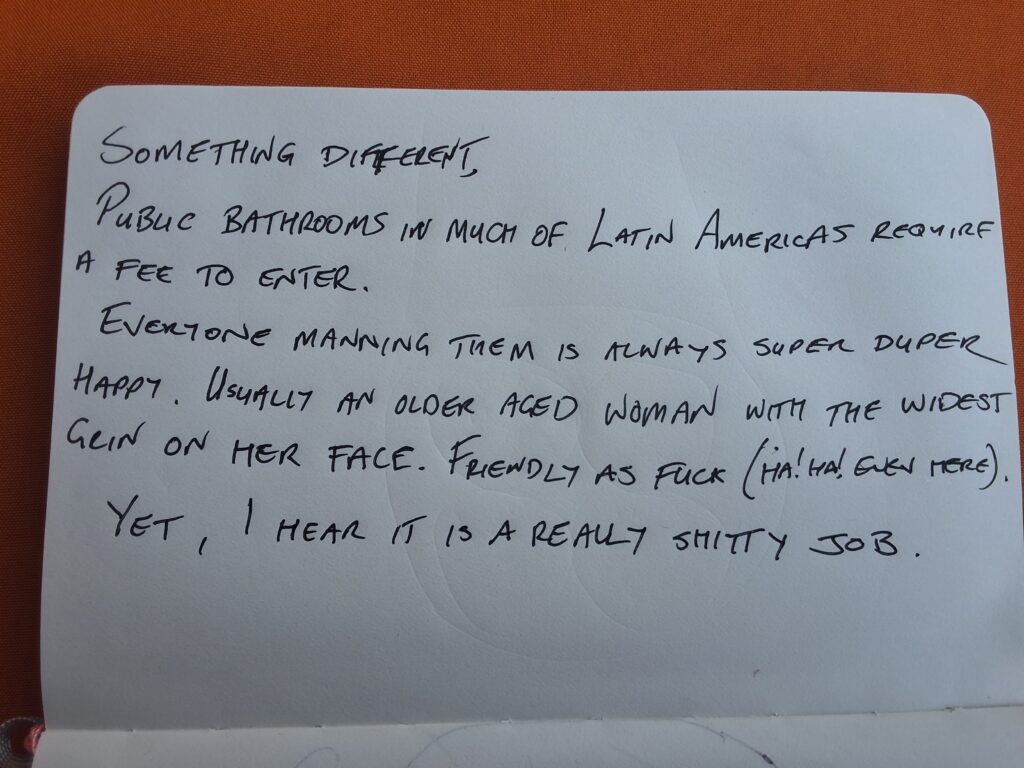 SOMETHING DIFFERENT,
PUBLIC BATHROOMS IN MUCH OF LATIN AMERICAS REQUIRE
A FEE TO ENTER.
EVERYONE MANNING THEM IS ALWAYS SUPER DUPER
HAPPY. USUALLY AN OLDER AGED WOMAN WITH THE WIDEST
GRIN ON HER FACE. FRIENDLY AS FUCK (HA! HA! EVEN HERE).
YET, I HEAR IT IS A REALLY SHITTY JOB.